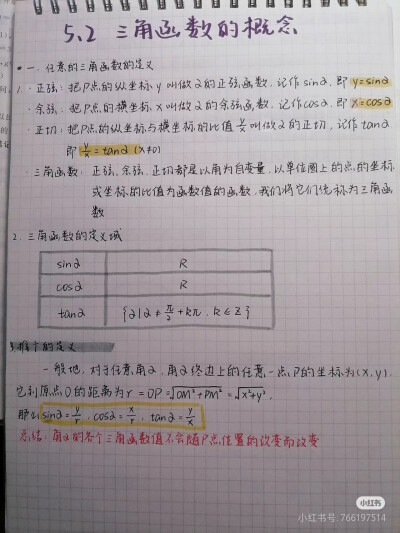 5.2 三角函数的概念
一. 任意的三角函数的定义
1. 正弦: 把P点的纵坐标y叫做α的正弦函数, 记作sinα, 即 y=sinα
· 余弦: 把P点的横坐标x叫做α的余弦函数, 记作cosα, 即 x=cosα
· 正切: 把P点的纵坐标与横坐标的比值y/x叫做α的正切, 记作tanα
即 y/x=tanα (x≠0)
· 三角函数: 正弦, 余弦, 正切都是以角为自变量, 以单位圆上的点的坐标
或坐标的比值为函数值的函数, 我们将它们统称为三角函
数
2. 三角函数的定义域
sinα R
cosα R
tanα {α|α≠π/2+kπ, k∈Z}
3.推个的定义
一般地, 对于任意角α, 角α终边上的任意一点P的坐标为(x,y)
它到原点O的距离为r=OP=√OM²+PM²=√x²+y²,
那么sinα=y/r, cosα=x/r, tanα=y/x
总结: 角α的各个三角函数值不会随P点位置的改变而改变
小红书
小红书号: 766197514